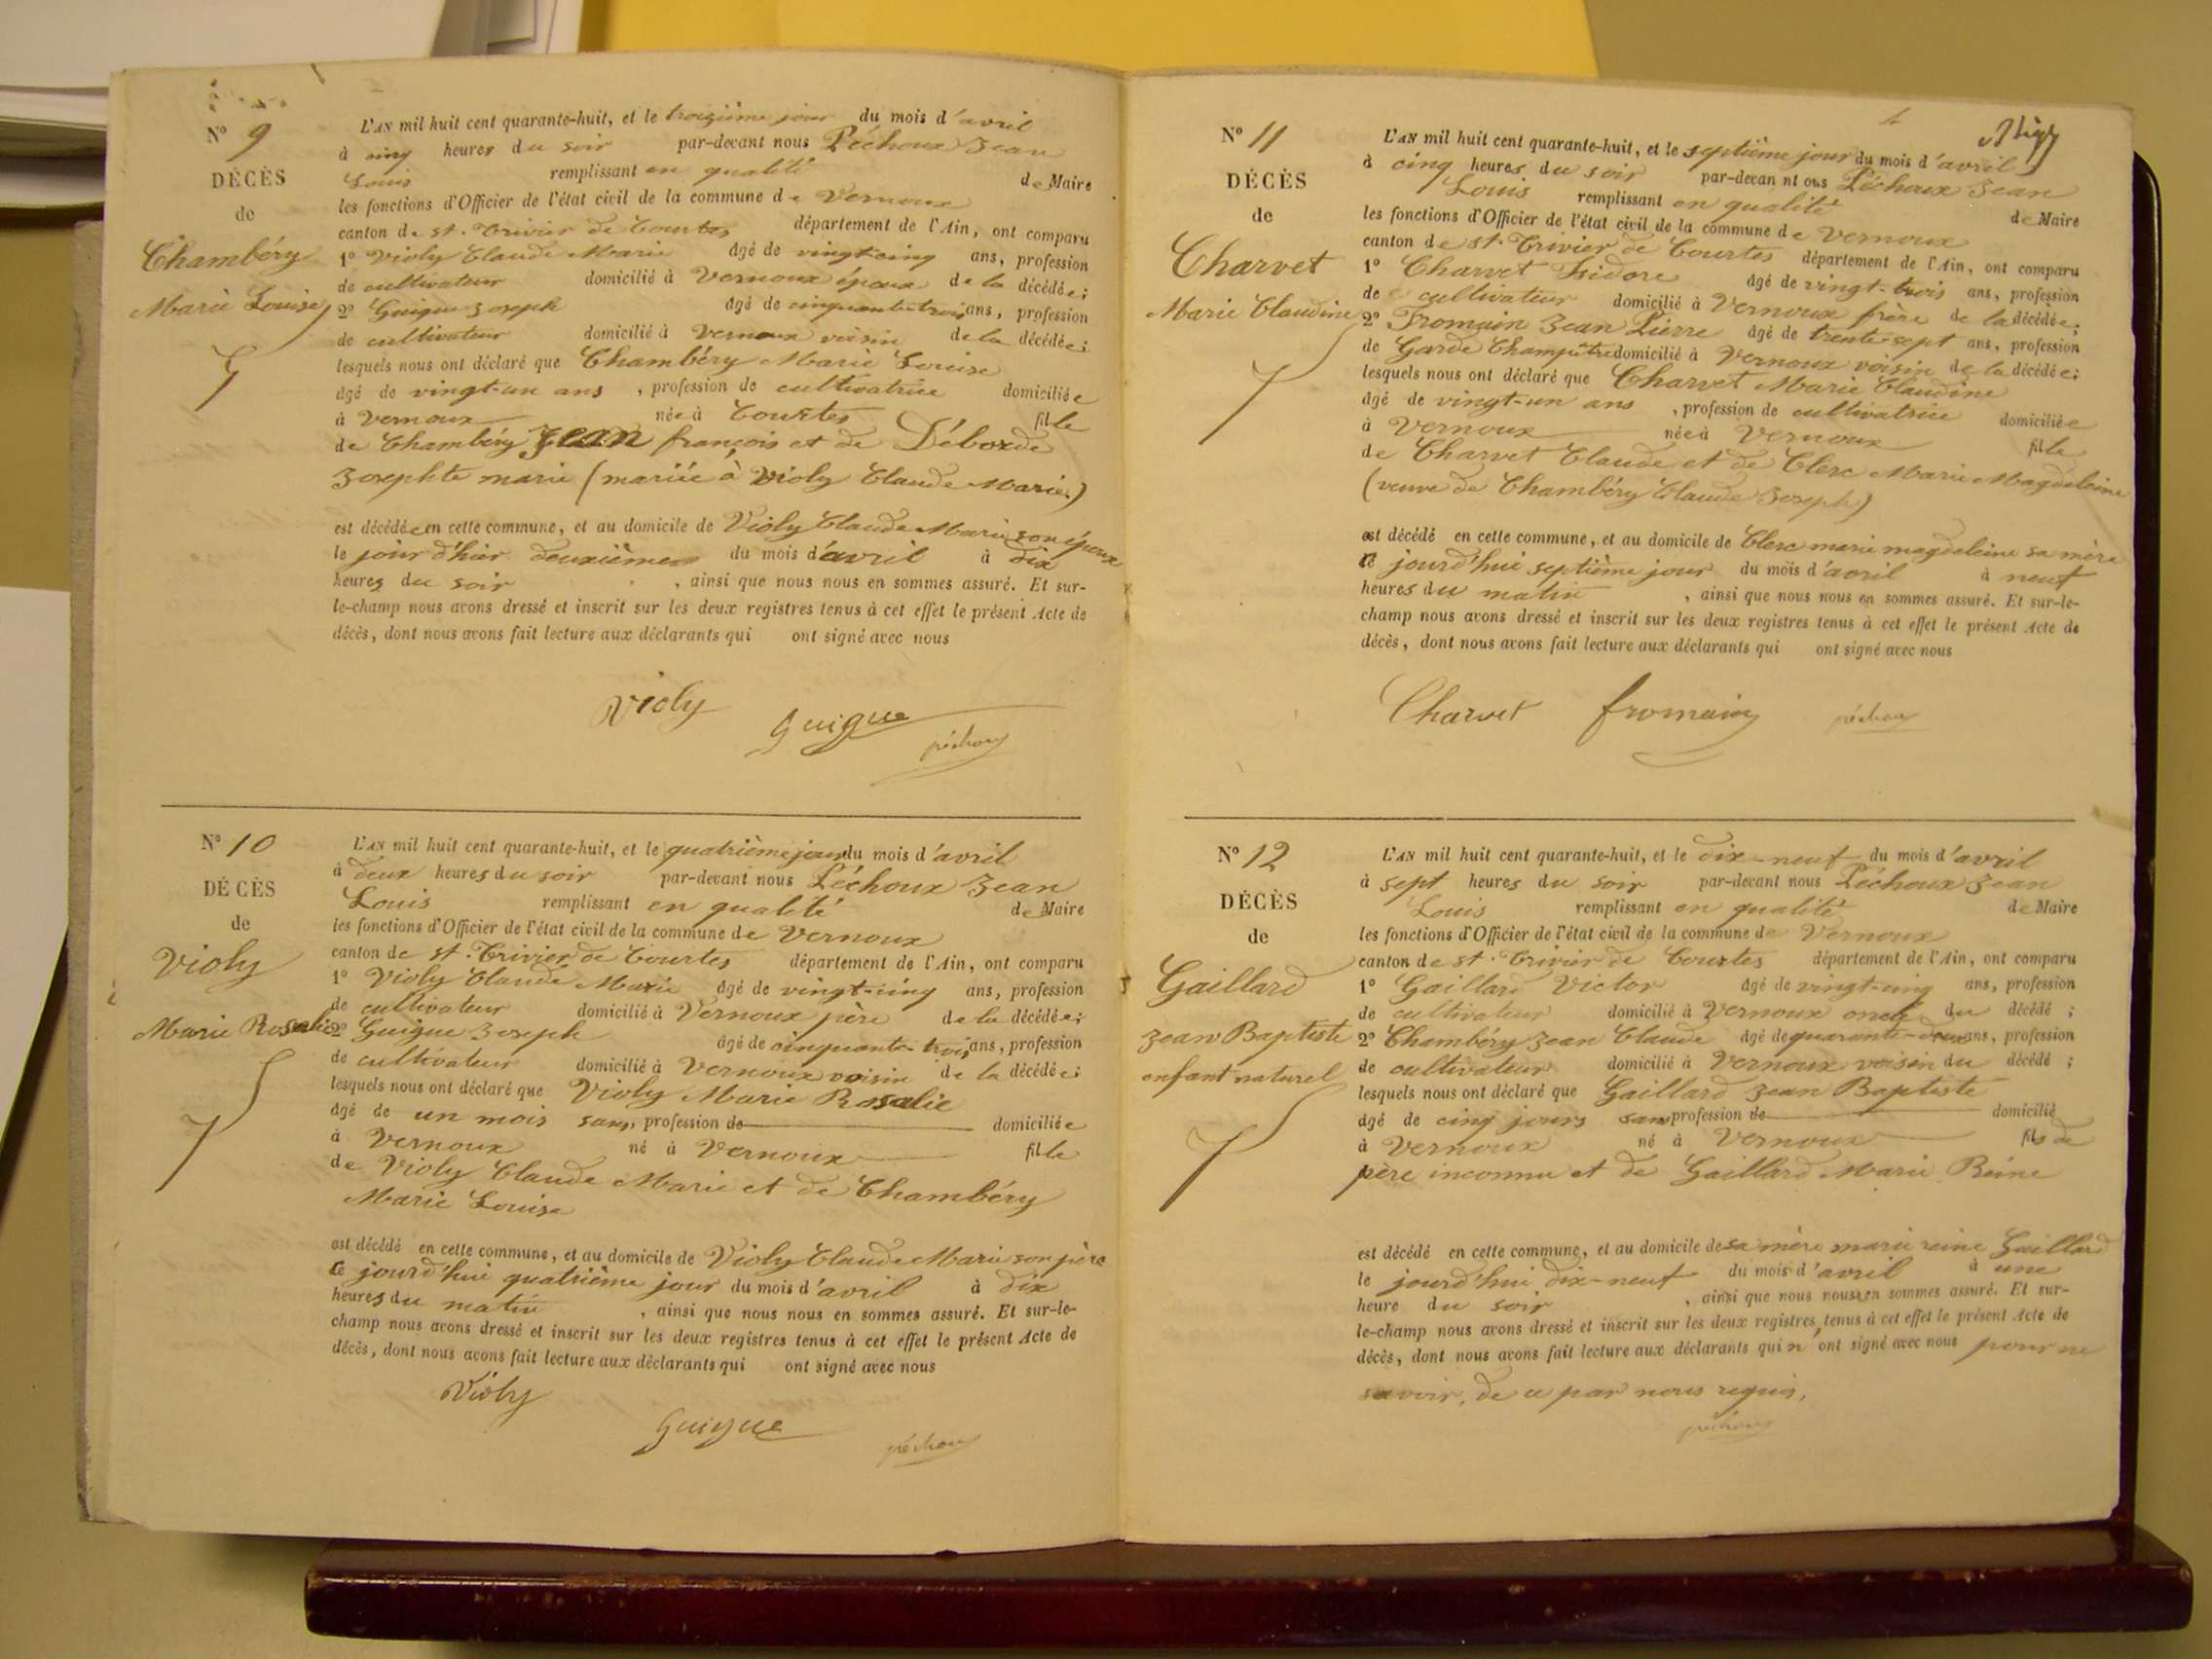 N° 9
DÉCÈS
de
Chambéry
Marie Louise
L'AN mil huit cent quarante-huit, et le troizième jour du mois d'avril
à cinq heures du soir par-devant nous Péchoux Jean
Louis remplissant en qualité de Maire
les fonctions d'Officier de l'état civil de la commune de Vernoux
canton de st. Trivier de Courtes département de l'Ain, ont comparu
1° Violy Claude Marie âgé de vingt-cinq ans, profession
de cultivateur domicilié à Vernoux époux de la décédée;
2° Guigue Joseph âgé de cinquante trois ans, profession
de cultivateur domicilié à Vernoux voisin de la décédée;
lesquels nous ont déclaré que Chambéry Marie Louise
âgé de vingt-un ans , profession de cultivatrice domiciliée
à Vernoux née à Courtes fille
de Chambéry Jean françois et de Déborde
Josephte marie (mariée à Violy Claude Marie)
est décédée en cette commune, et au domicile de Violy Claude Marie son époux
le jour d'hier deuxième du mois d'avril à dix
heures du soir , ainsi que nous nous en sommes assuré. Et sur-
le-champ nous avons dressé et inscrit sur les deux registres tenus à cet effet le présent Acte de
décès, dont nous avons fait lecture aux déclarants qui ont signé avec nous
Violy Guigue péchoux
N° 10
DÉCÈS
de
Violy
Marie Rosalie
L'AN mil huit cent quarante-huit, et le quatrième jour du mois d'avril
à deux heures du soir par-devant nous Péchoux Jean
Louis remplissant en qualité de Maire
les fonctions d'Officier de l'état civil de la commune de Vernoux
canton de st. Trivier de Courtes département de l'Ain, ont comparu
1° Violy Claude Marie âgé de vingt-cinq ans, profession
de cultivateur domicilié à Vernoux père de la décédée;
2° Guigue Joseph âgé de cinquante trois ans, profession
de cultivateur domicilié à Vernoux voisin de la décédée;
lesquels nous ont déclaré que Violy Marie Rosalie
âgé de un mois sans profession de domiciliée
à Vernoux né à Vernoux fille
de Violy Claude Marie et de Chambéry
Marie Louise
est décédé en cette commune, et au domicile de Violy Claude Marie son père
ce jourd'hui quatrième jour du mois d'avril à dix
heures du matin , ainsi que nous nous en sommes assuré. Et sur-le-
champ nous avons dressé et inscrit sur les deux registres tenus à cet effet le présent Acte de
décès, dont nous avons fait lecture aux déclarants qui ont signé avec nous
Violy Guigue péchoux
N° 11
DÉCÈS
de
Charvet
Marie Claudine
L'AN mil huit cent quarante-huit, et le septième jour du mois d'avril
à cinq heures du soir par-devan nt ous Péchoux Jean
Louis remplissant en qualité de Maire
les fonctions d'Officier de l'état civil de la commune de Vernoux
canton de st. Trivier de Courtes département de l'Ain, ont comparu
1° Charvet Isidore âgé de vingt-trois ans, profession
de cultivateur domicilié à Vernoux frère de la décédée;
2° Fromain Jean Pierre âgé de trente-sept ans, profession
de Garde Champêtre domicilié à Vernoux voisin de la décédée;
lesquels nous ont déclaré que Charvet Marie Claudine
âgé de vingt-un ans , profession de cultivatrice domiciliée
à Vernoux née à Vernoux fille
de Charvet Claude et de Clerc Marie Magdeleine
(veuve de Chambéry Claude Joseph)
est décédé en cette commune, et au domicile de Clerc marie magdeleine sa mère
ce jourd'hui septième jour du mois d'avril à neuf
heures du matin , ainsi que nous nous en sommes assuré. Et sur-le-
champ nous avons dressé et inscrit sur les deux registres tenus à cet effet le présent Acte de
décès, dont nous avons fait lecture aux déclarants qui ont signé avec nous
Charvet fromain péchoux
N° 12
DÉCÈS
de
Gaillard
Jean Baptiste
enfant naturel
L'AN mil huit cent quarante-huit, et le dix-neuf du mois d'avril
à sept heures du soir par-devant nous Péchoux Jean
Louis remplissant en qualité de Maire
les fonctions d'Officier de l'état civil de la commune de Vernoux
canton de st. Trivier de Courtes département de l'Ain, ont comparu
1° Gaillard Victor âgé de vingt-cinq ans, profession
de cultivateur domicilié à Vernoux oncle du décédé ;
2° Chambéry Jean Claude âgé de quarante-deux ans, profession
de cultivateur domicilié à Vernoux voisin du décédé ;
lesquels nous ont déclaré que Gaillard Jean Baptiste
âgé de cinq jours sans profession de domicilié
à Vernoux né à Vernoux fils de
père inconnu et de Gaillard Marie Reine
est décédé en cette commune, et au domicile de sa mère marie reine Gaillard
le jourd'hui dix-neuf du mois d'avril à une
heure du soir , ainsi que nous nous en sommes assuré. Et sur-
le-champ nous avons dressé et inscrit sur les deux registres tenus à cet effet le présent Acte de
décès, dont nous avons fait lecture aux déclarants qui n'ont signé avec nous pour ne
savoir, de ce par nous requis,
péchoux